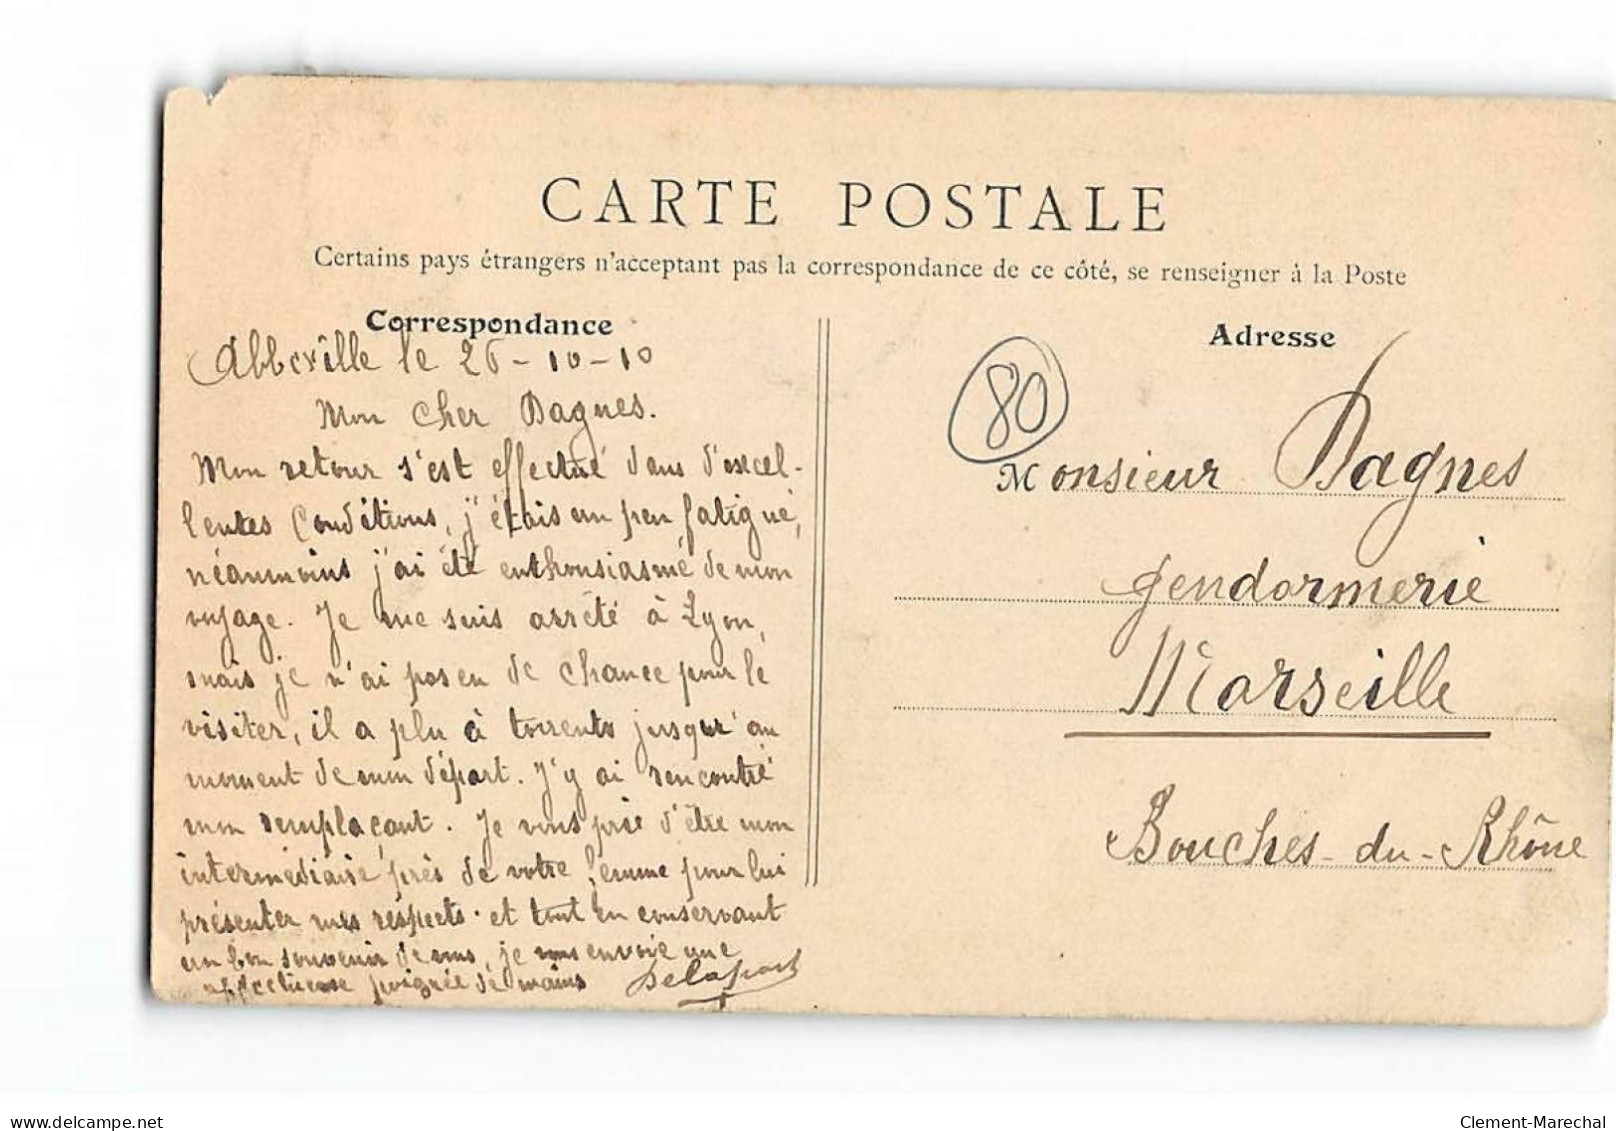 CARTE POSTALE
Certains pays étrangers n'acceptant pas la correspondance de ce côté, se renseigner à la Poste
Correspondance
Abbeville le 26-10-10
Mon Cher Dagnes.
Mon retour s'est effectué dans d'excel-
lentes conditions, j'étais un peu fatigué,
néanmoins j'ai été enthousiasmé de mon
voyage. Je me suis arrêté à Lyon,
mais je n'ai pas eu de chance pour le
visiter, il a plu à torrents jusqu'au
moment de mon départ. J'y ai rencontré
mon remplaçant. Je vous prie d'être mon
intermédiaire près de votre femme pour lui
présenter mes respects. et tout en conservant
un bon souvenir de vous, je vous envoie une
affectueuse poignée de mains Delaport
Adresse
80
Monsieur Dagnes
Gendarmerie
Marseille
Bouches-du-Rhône
delcampe.net
Clement-Marechal